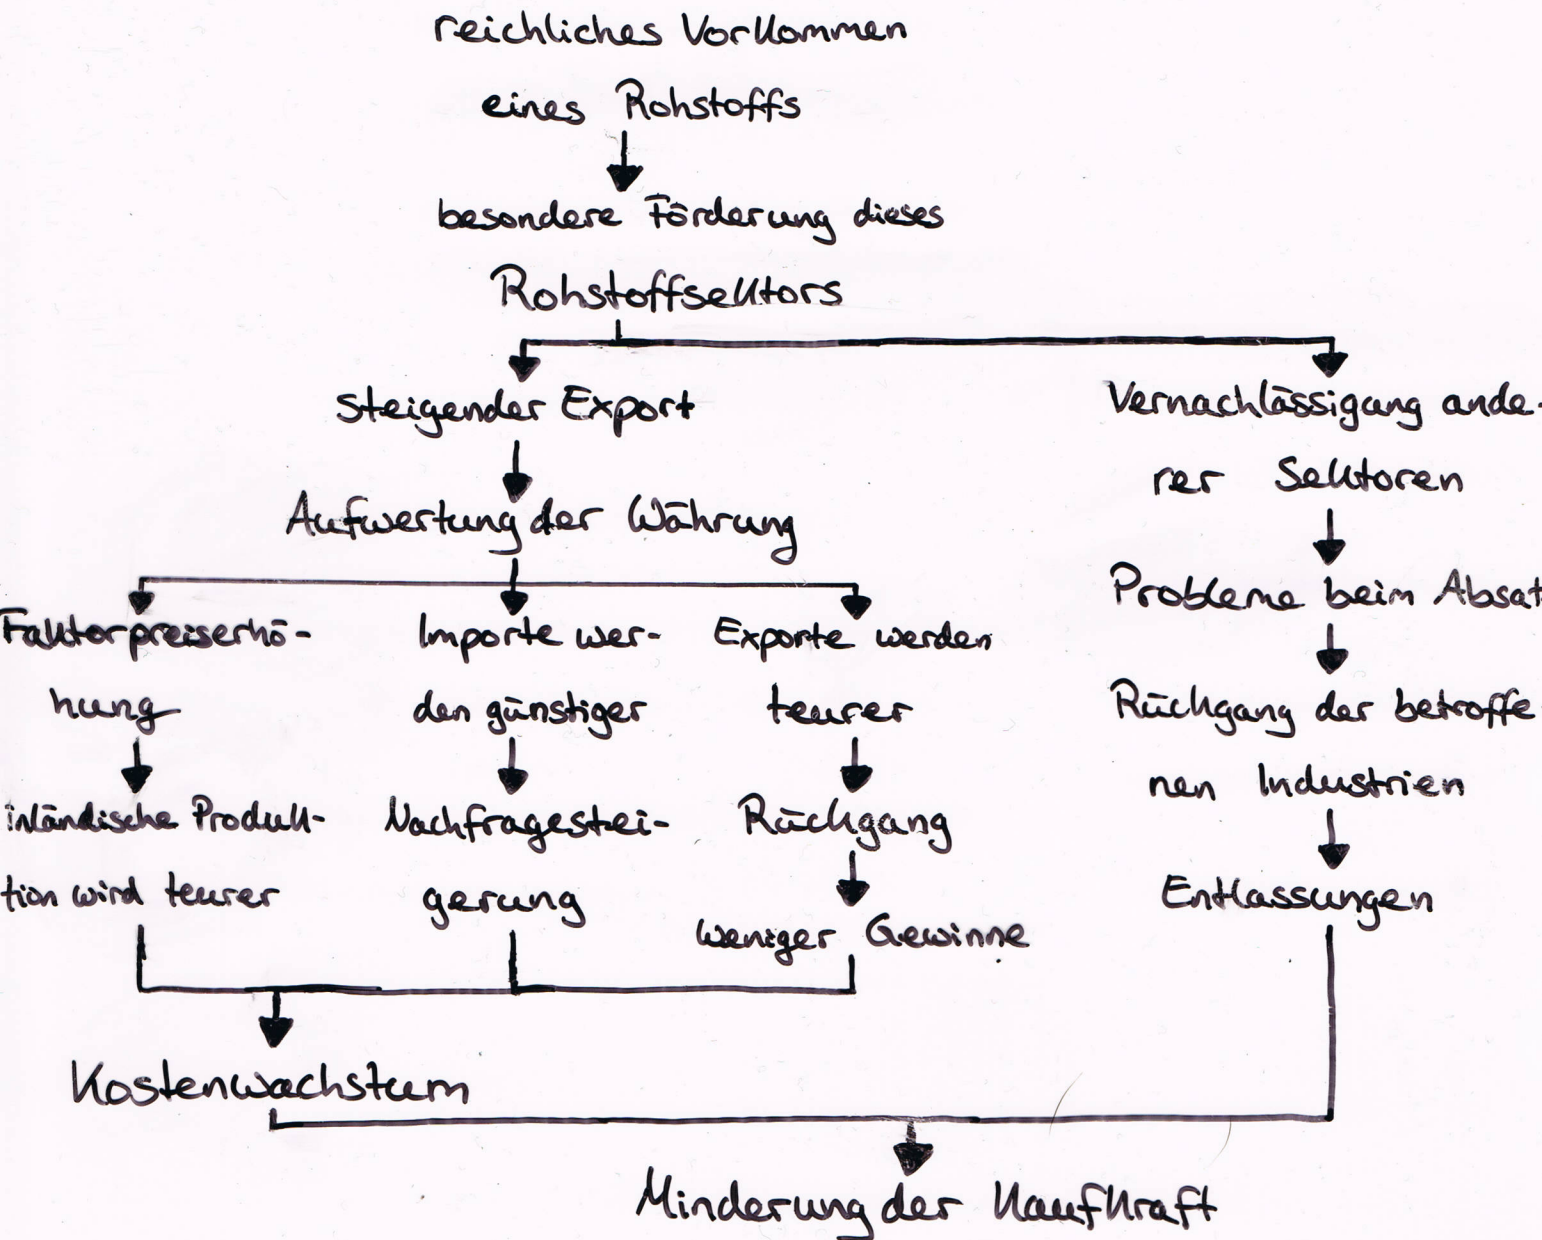 reichliches Vorkommen
eines Rohstoffs
besondere Förderung dieses
Rohstoffsektors
steigender Export
Aufwertung der Währung
Faktorpreiserhö-
hung
inländische Produk-
tion wird teurer
Importe wer-
den günstiger
Nachfragestei-
gerung
Exporte werden
teurer
Rückgang
weniger Gewinne
Kostenwachstum
Vernachlässigung ande-
rer Sektoren
Probleme beim Absat
Rückgang der betroffe
nen Industrien
Entlassungen
Minderung der Kaufkraft